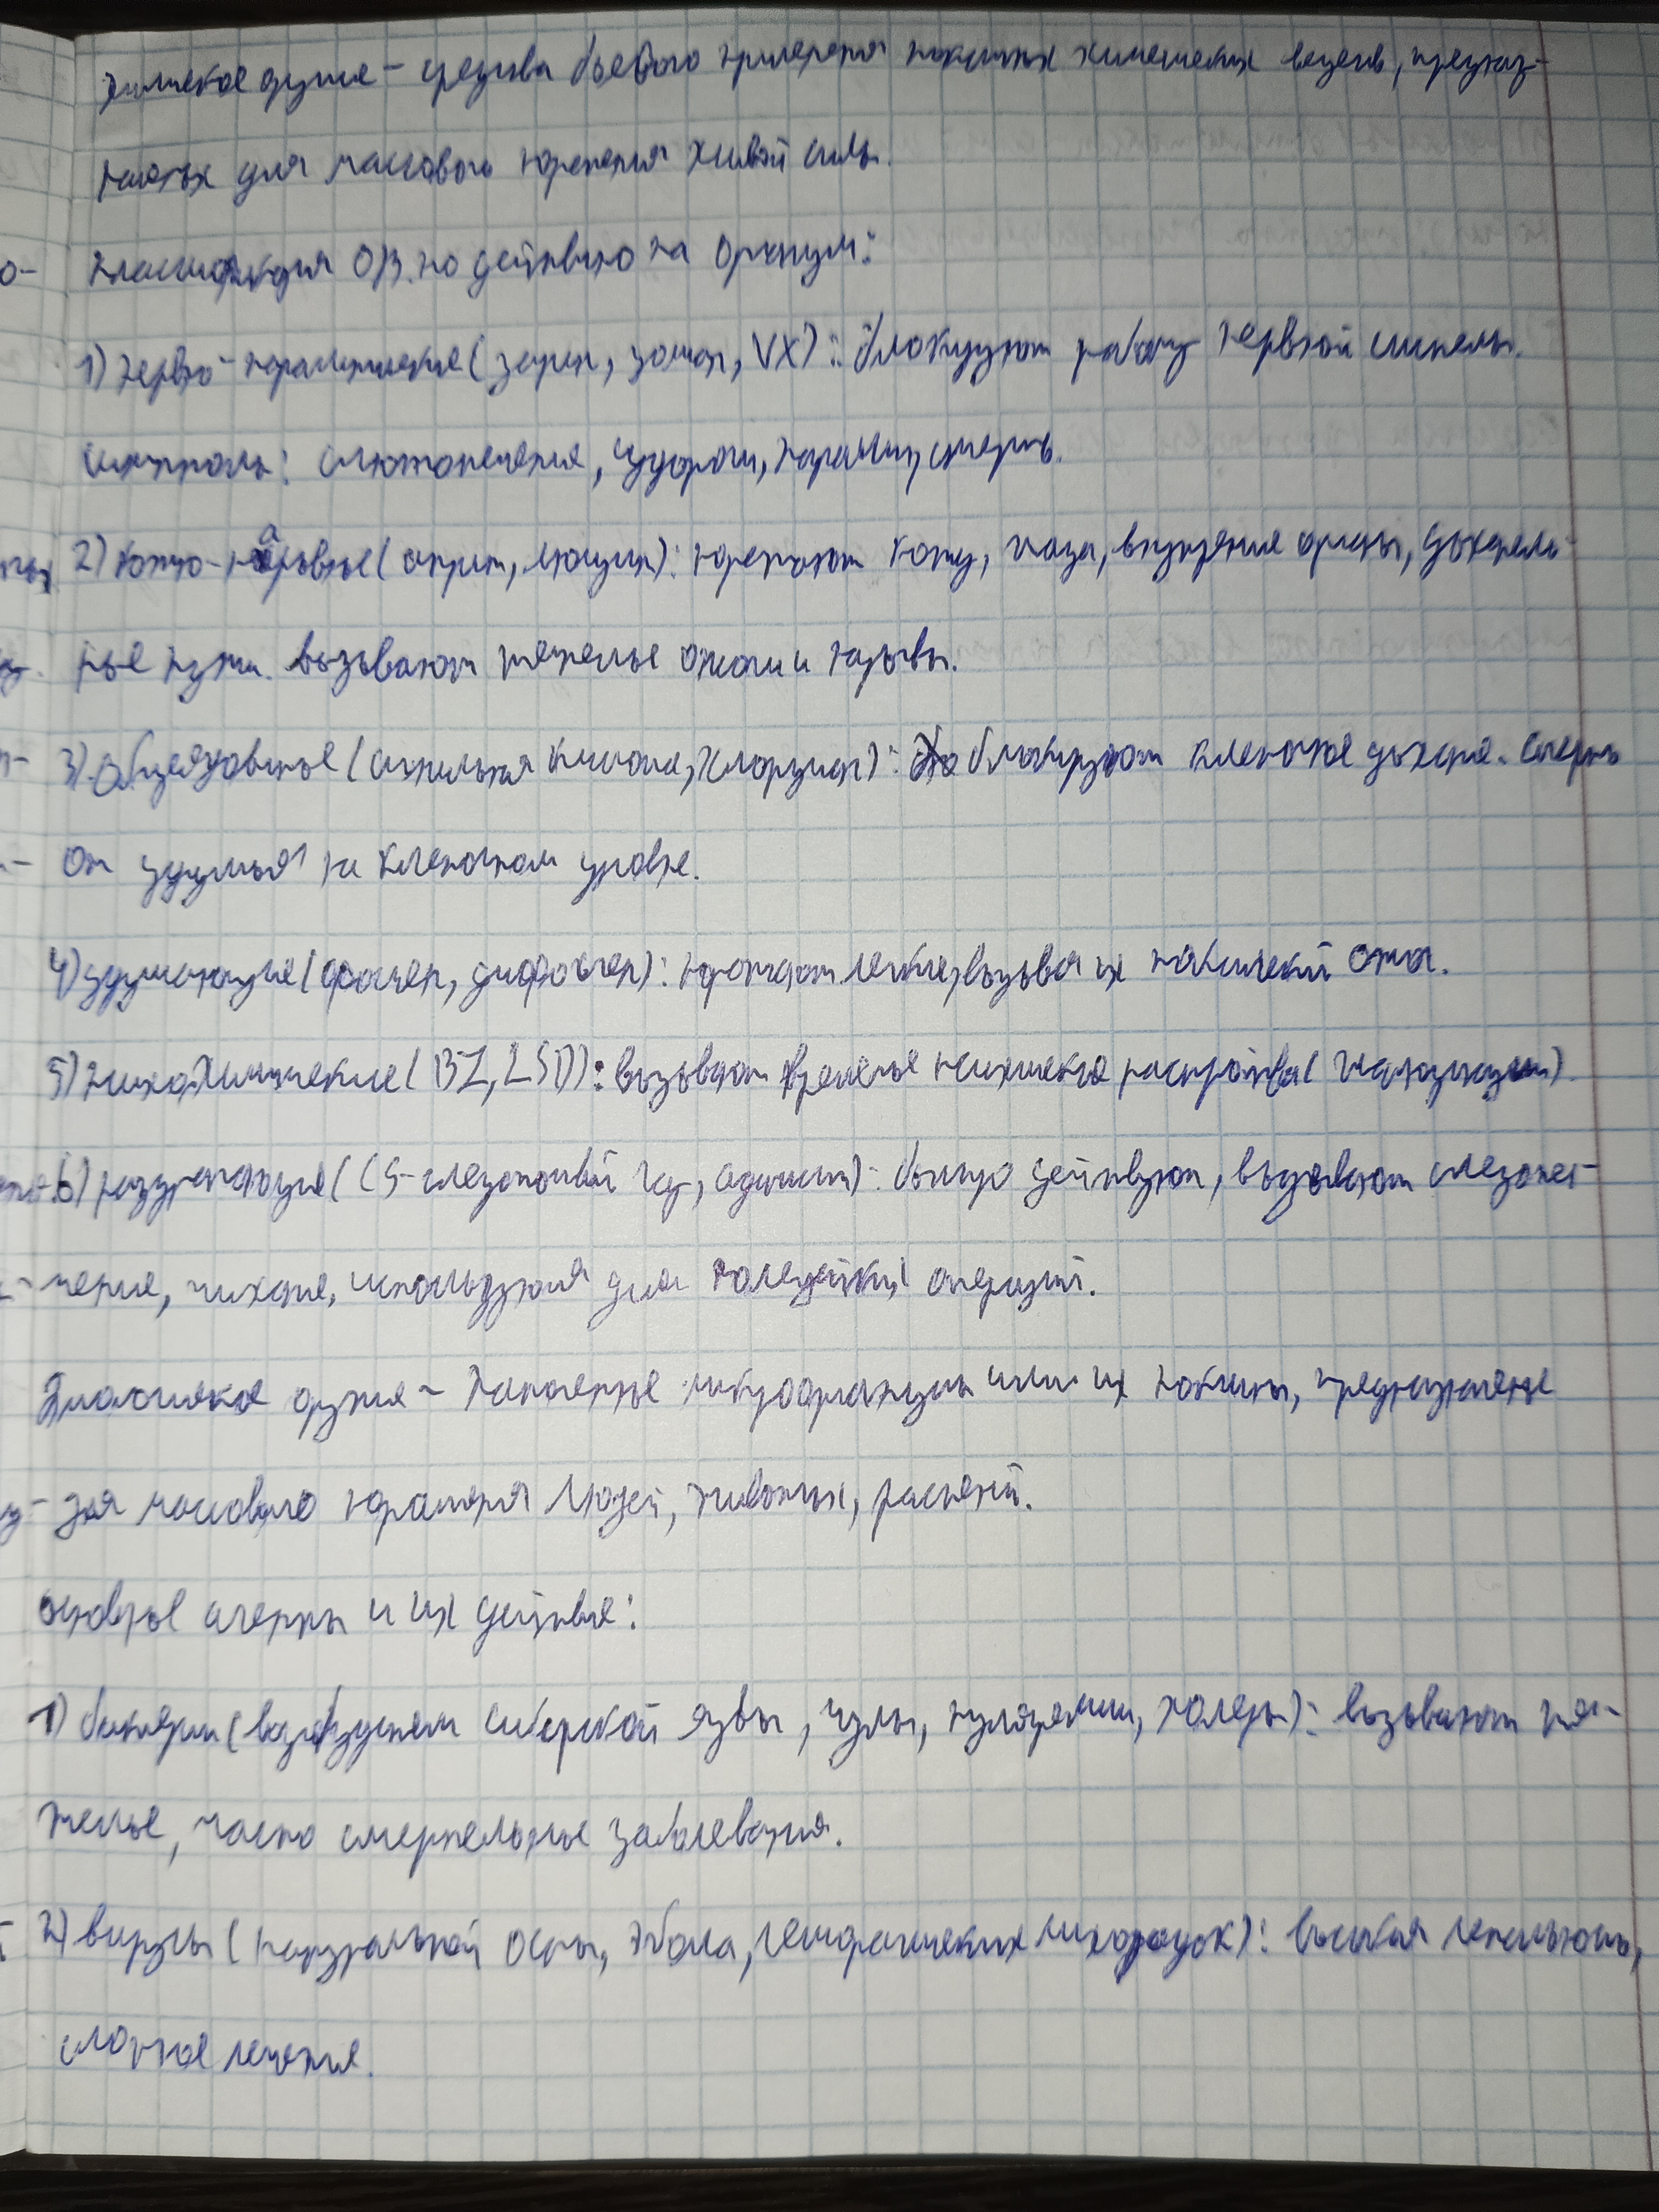 Химическое оружие – средства боевого применения токсичных химических веществ, предназ-
наченных для массового поражения живой силы.
Классификация ОВ по действию на организм:
1) Нервно-паралитические (зарин, зоман, VX): блокируют работу нервной системы.
симптомы: слюнотечение, судороги, паралич, смерть.
2) Кожно-нарывные (иприт, люизит): поражают кожу, глаза, внутренние органы, дыхатель-
ные пути. вызывают тяжелые ожоги и нарывы.
3) Общеядовитые (синильная кислота, хлорциан): блокируют клеточное дыхание. Смерть
от удушья на клеточном уровне.
4) удушающие (фосген, дифосген): поражают легкие, вызывая их токсический отек.
5) психохимические (BZ, LSD): вызывают временные психические расстройства (галлюцинации)
6) раздражающие (CS-слезоточивый газ, адамсит): быстро действуют, вызывают слезоте-
чение, чихание, используются для полицейских операций.
Биологическое оружие – патогенные микроорганизмы или их токсины, предназначенные
для массового поражения людей, животных, растений.
основные агенты и их действие:
1) бактерии (возбудители сибирской язвы, чумы, туляремии, холеры): вызывают тя-
желые, часто смертельные заболевания.
2) вирусы (натуральной оспы, Эбола, геморрагических лихорадок): высокая летальность,
сложное лечение.